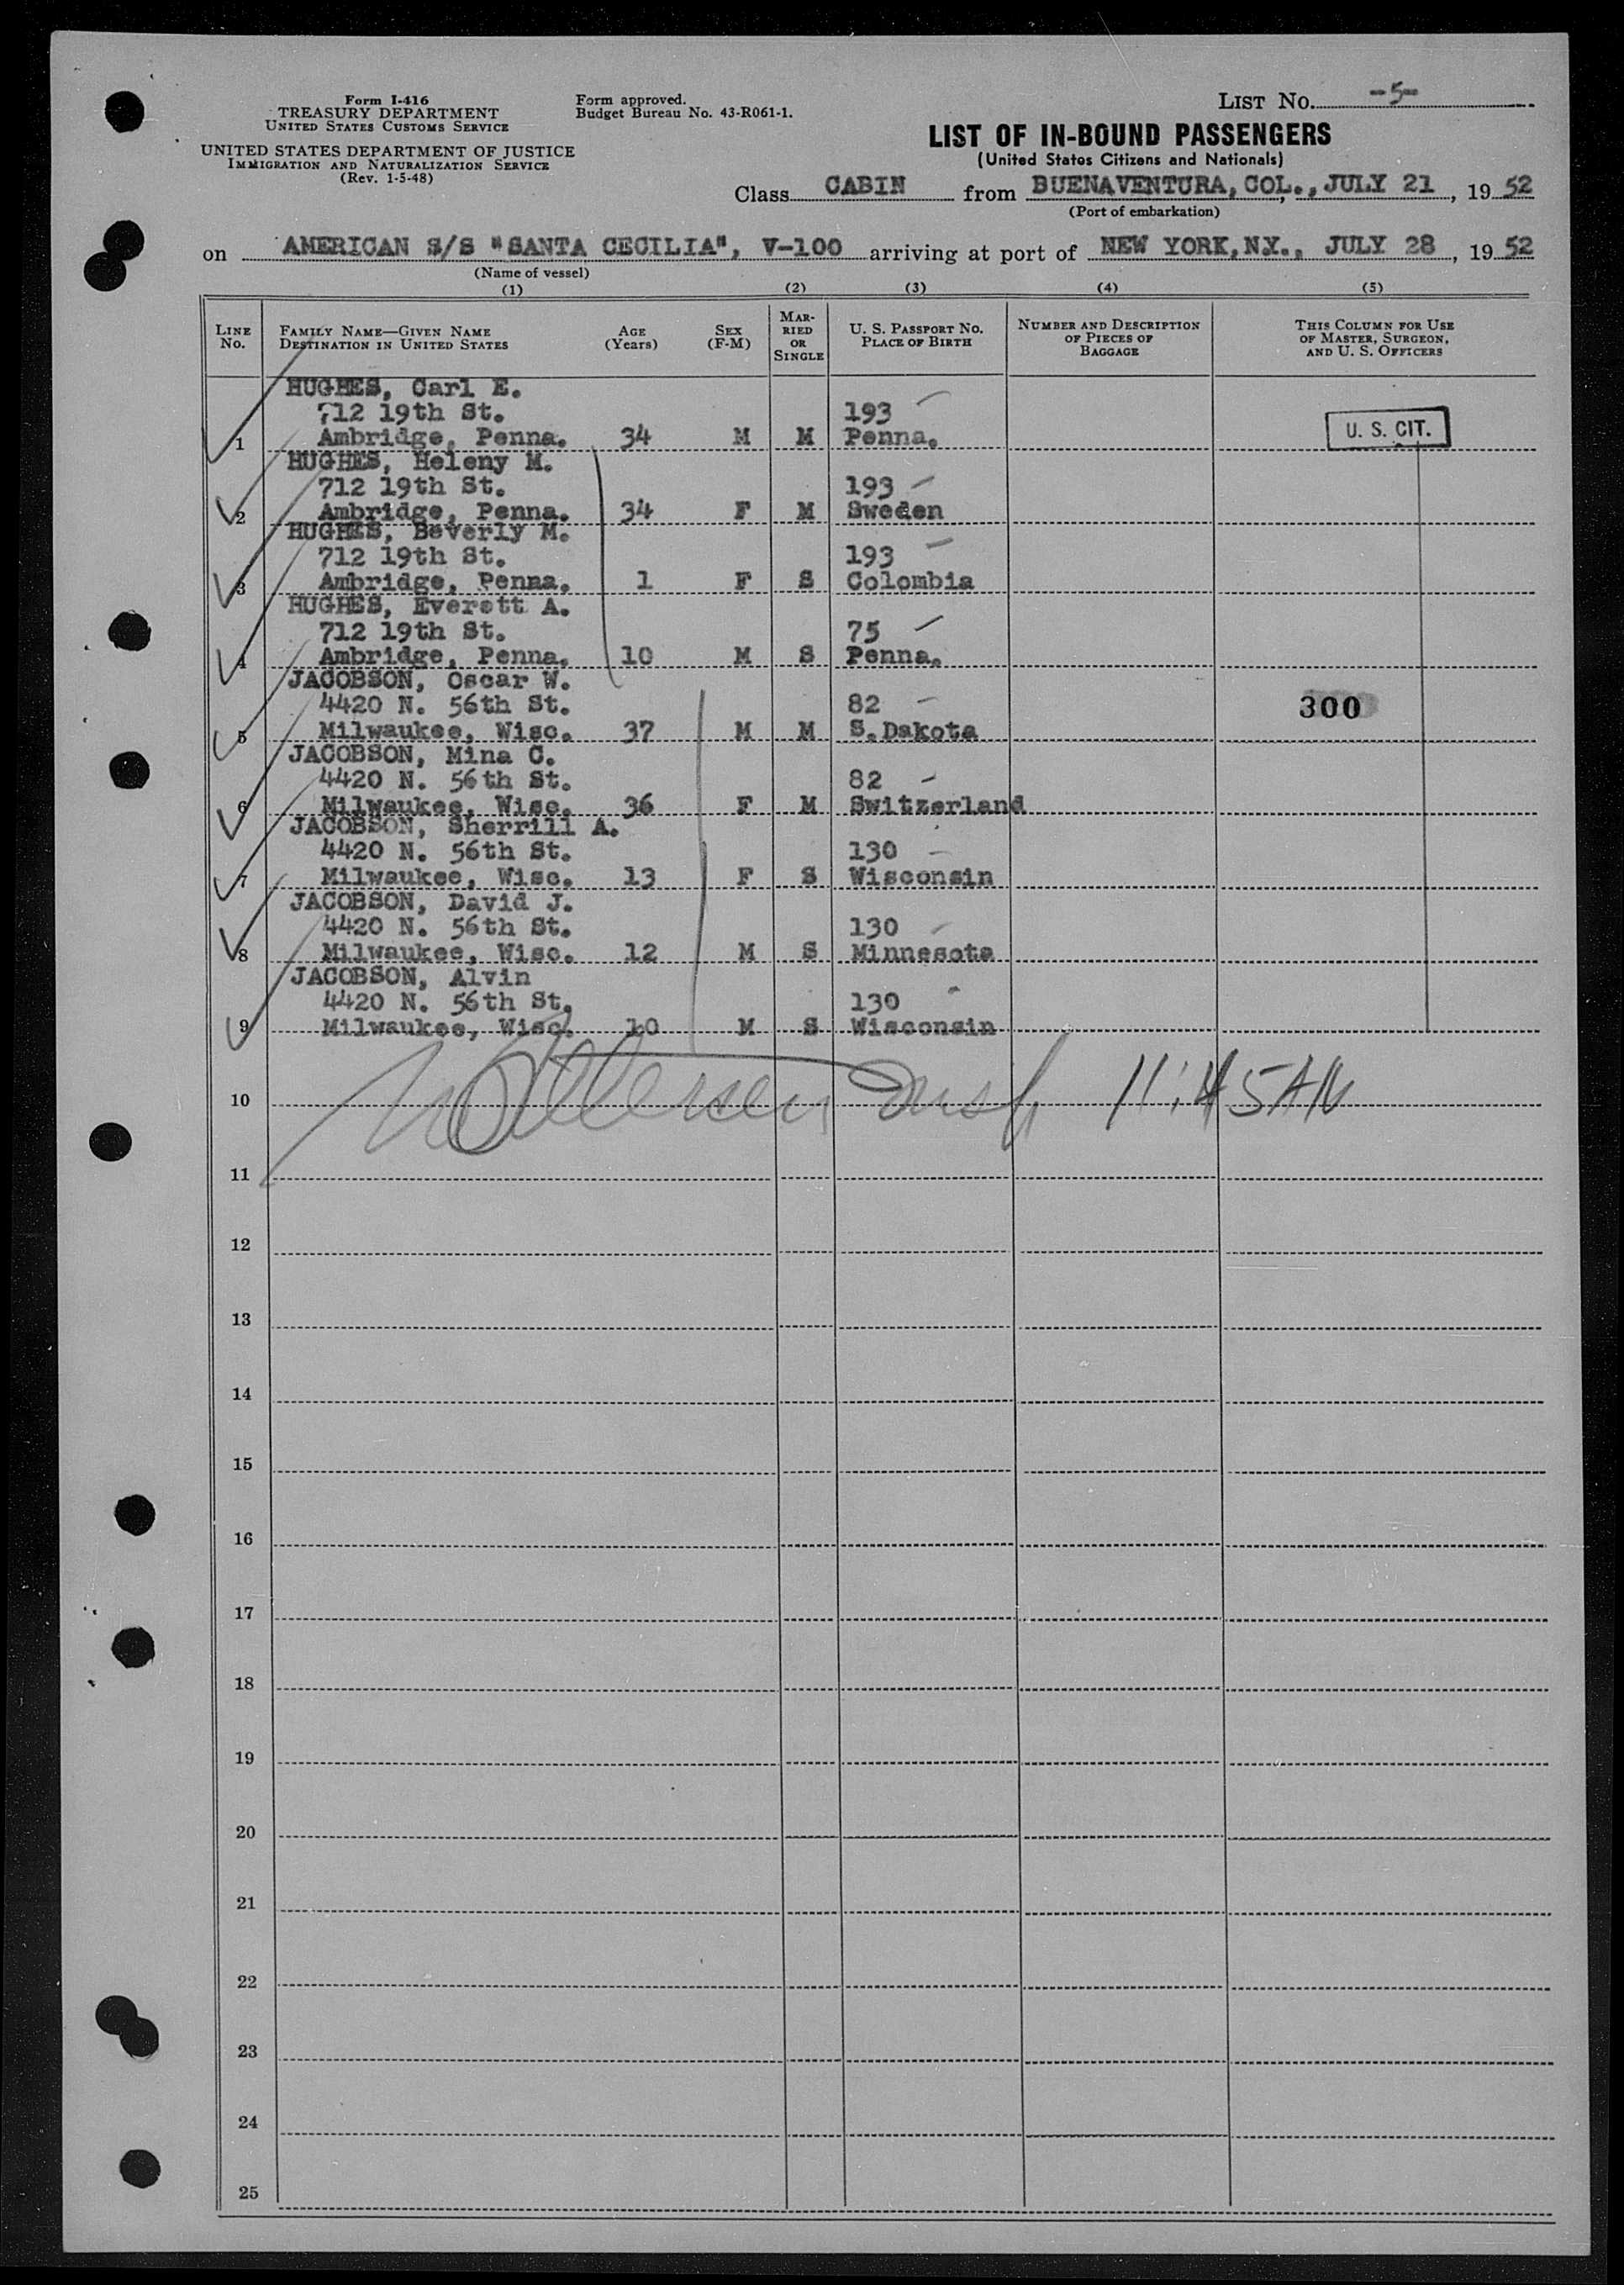 Form I-416
TREASURY DEPARTMENT
UNITED STATES CUSTOMS SERVICE
UNITED STATES DEPARTMENT OF JUSTICE
IMMIGRATION AND NATURALIZATION SERVICE
(Rev. 1-5-48)
Form approved.
Budget Bureau No. 43-R061-1.
LIST No. -5-
LIST OF IN-BOUND PASSENGERS
(United States Citizens and Nationals)
Class CABIN from BUENAVENTURA, COL., JULY 21, 1952
(Port of embarkation)
on AMERICAN S/S "SANTA CECILIA", V-100 arriving at port of NEW YORK, N.Y., JULY 28, 1952
(Name of vessel)
(1) (2) (3) (4) (5)
LINE No.
FAMILY NAME—GIVEN NAME
DESTINATION IN UNITED STATES
AGE
(Years)
SEX
(F-M)
MAR-
RIED
OR
SINGLE
U. S. PASSPORT NO.
PLACE OF BIRTH
NUMBER AND DESCRIPTION
OF PIECES OF
BAGGAGE
THIS COLUMN FOR USE
OF MASTER, SURGEON,
AND U. S. OFFICERS
HUGHES, Carl E.
712 19th St. 193
1 Ambridge, Penna. 34 M M Penna. U. S. CIT.
HUGHES, Heleny M.
712 19th St. 193
2 Ambridge, Penna. 34 F M Sweden
HUGHES, Beverly M.
712 19th St. 193
3 Ambridge, Penna. 1 F S Colombia
HUGHES, Everett A.
712 19th St. 75
4 Ambridge, Penna. 10 M S Penna.
JACOBSON, Oscar W.
4420 N. 56th St. 82 300
5 Milwaukee, Wisc. 37 M M S. Dakota
JACOBSON, Mina C.
4420 N. 56th St. 82
6 Milwaukee, Wisc. 36 F M Switzerland
JACOBSON, Sherrill A.
4420 N. 56th St. 130
7 Milwaukee, Wisc. 13 F S Wisconsin
JACOBSON, David J.
4420 N. 56th St. 130
8 Milwaukee, Wisc. 12 M S Minnesota
JACOBSON, Alvin
4420 N. 56th St. 130
9 Milwaukee, Wisc. 10 M S Wisconsin
10 Insp. 11:45 AM
11
12
13
14
15
16
17
18
19
20
21
22
23
24
25